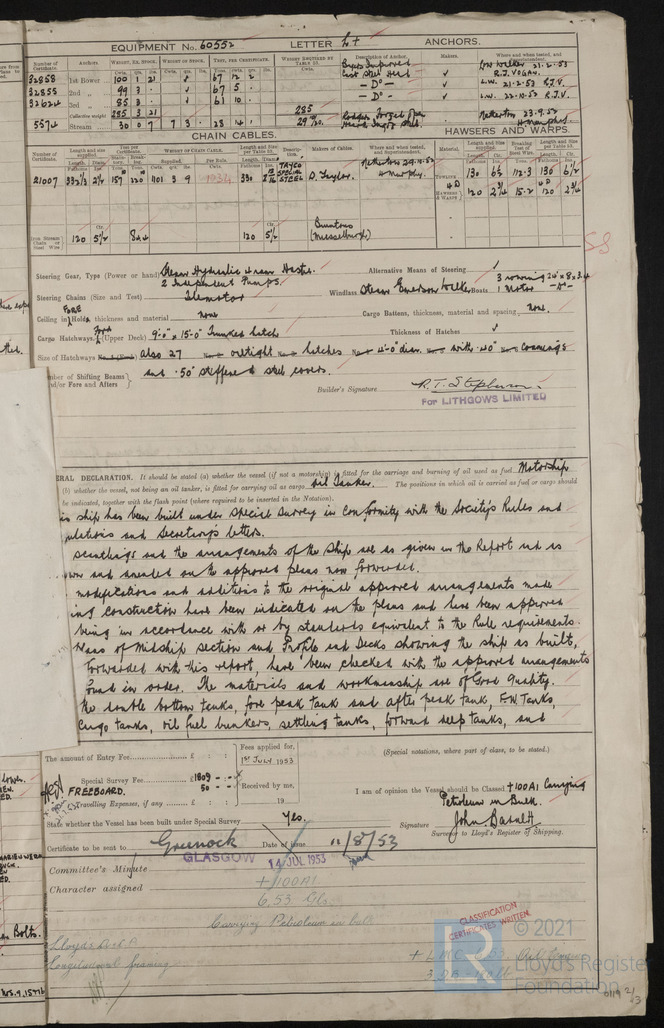 EQUIPMENT No. 60552 LETTER L+ ANCHORS.
Number of Certificate. Anchors. WEIGHT, EX. STOCK WEIGHT OF STOCK. TEST, PER CERTIFICATE. WEIGHT REQUIRED BY TABLE 53. Description of Anchor. Makers. Where and when tested, and Superintendent.
32858 1st Bower 100 1 21 ✓ 67 12 2 Byers Improved Cast Steel Head ✓ 21-2-53 R.J. VOGAN.
32855 2nd „ 99 3 · ✓ 67 5 · — Do — ✓ L.W. 21-2-53 R.J.V.
32624 3rd „ 85 3 · ✓ 61 10 · — Do — ✓ L.W. 22-10-53 R.J.V.
Collective weight 285 3 21 285
5574 Stream 30 0 7 7 3 · 28 14 1 Netherton 23.9.52
CHAIN CABLES. HAWSERS AND WARPS.
Number of Certificate. Length and size supplied. Test per Certificate. WEIGHT OF CHAIN CABLE. Length and Size per Table 53. Description. Makers of Cables. Where and when tested, and Superintendent. Material. Length and Size supplied. Breaking Test of Steel Wire. Length and Size per Table 53.
21007 332½ 2⅝ 157 220 1101 3 9 330 TAYCO SPECIAL STEEL D. Taylor. TOWLINE 130 6½ 112.3 130 6½
HAWSERS & WARPS 120 2¾ 15.2 120 2¾
Iron Stream Chain or Steel Wire 120 5½ 120 5½ Bruntons (Musselburgh)
Steering Gear, Type (Power or hand) Steam Hydraulic 4 ram Hastie. 2 Independent Pumps. Alternative Means of Steering ✓
Steering Chains (Size and Test) Telemotor Windlass Steam Emerson Walker Boats 3 rowing 24' x 8 x 3.4 1 Motor —"—
Ceiling in FORE Hold, thickness and material none Cargo Battens, thickness, material and spacing none.
Cargo Hatchways. Ford (Upper Deck) 9'-0" x 15'-0" Trunked hatch Thickness of Hatches ✓
Size of Hatchways also 27 oiltight hatches 4'-0" diam. with .40" coamings
Number of Shifting Beams and/or Fore and Afters and .50" stiffened steel covers.
Builder's Signature R. T. Stephenson.
FOR LITHGOWS LIMITED
ERAL DECLARATION. It should be stated (a) whether the vessel (if not a motorship) is fitted for the carriage and burning of oil used as fuel Motorship
(b) whether the vessel, not being an oil tanker, is fitted for carrying oil as cargo Oil Tanker. The positions in which oil is carried as fuel or cargo should
be indicated, together with the flash point (where required to be inserted in the Notation).
is ship has been built under Special Survey in conformity with the Society's Rules and
ulations and Secretary's letters.
scantlings and the arrangements of the ship are as given in the Report and as
wn and amended on the approved plans now forwarded.
modifications and additions to the original approved arrangements made
ing construction have been indicated on the plans and have been approved
being in accordance with or by standards equivalent to the Rule requirements.
lans of Midship section and Profile and Decks showing the ship as built,
forwarded with this report, have been checked with the approved arrangements
found in order. The materials and workmanship are of Good Quality.
the double bottom tanks, fore peak tank and after peak tank, F.W. Tanks,
Cargo tanks, oil fuel bunkers, settling tanks, forward deep tanks, and
The amount of Entry Fee £ : : Fees applied for, 1st JULY 1953 (Special notations, where part of class, to be stated.)
Special Survey Fee £1809 - - Received by me,
FREEBOARD. 50 - -
Travelling Expenses, if any £ : : 19
I am of opinion the Vessel should be Classed +100A1 Carrying
Petroleum in Bulk.
State whether the Vessel has been built under Special Survey Yes.
Signature John Barnett
Surveyor to Lloyd's Register of Shipping.
Certificate to be sent to Greenock Date of issue 11/8/53
GLASGOW 14 JUL 1953
Committee's Minute
Character assigned +100A1
6,53 Gls.
Carrying Petroleum in bulk
CLASSIFICATION CERTIFICATES WRITTEN
Lloyds A & C P
Longitudinal framing
+ LMC Oil Engine
LR
© 2021
Lloyd's Register
Foundation
0119 2/3